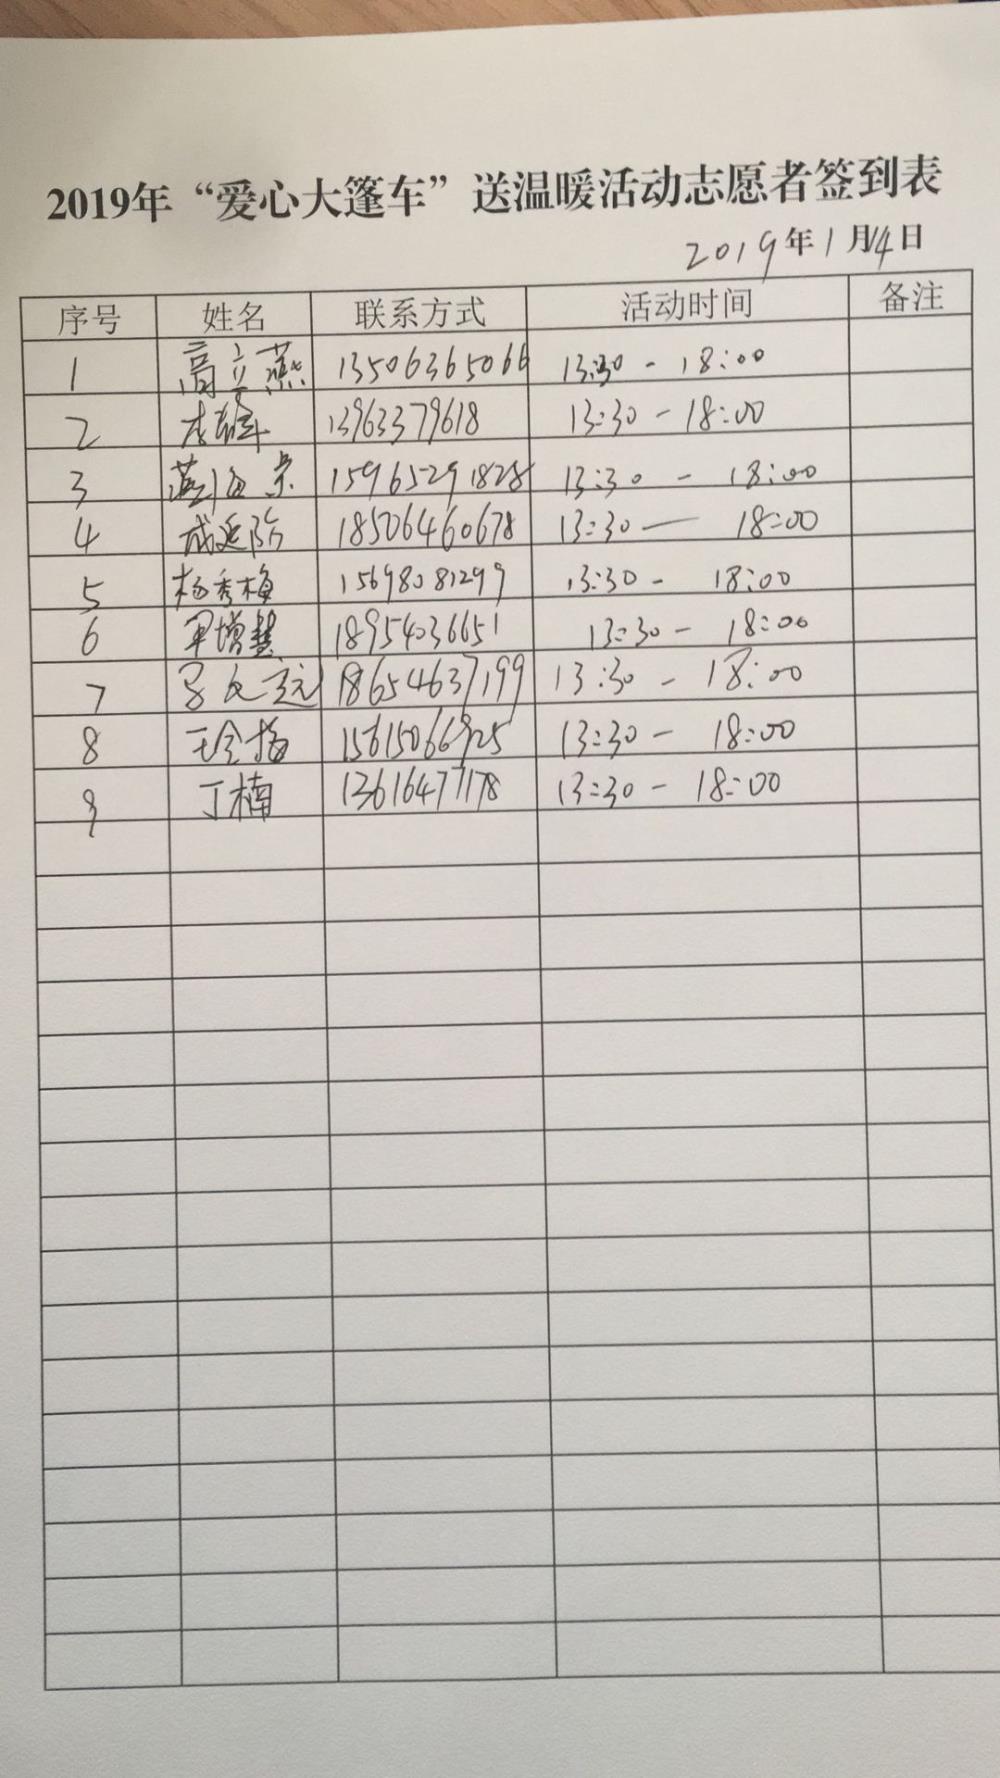 2019年“爱心大篷车”送温暖活动志愿者签到表
2019年1月14日
序号 姓名 联系方式 活动时间 备注
1 高立燕 13506365066 13:30 - 18:00
2 13963379618 13:30 - 18:00
3 15965291828 13:30 - 18:00
4 成延阶 18506460678 13:30 — 18:00
5 杨秀梅 15698081299 13:30 - 18:00
6 18954036651 13:30 - 18:00
7 18654637199 13:30 - 18:00
8 15615066925 13:30 - 18:00
9 丁楠 13616477178 13:30 - 18:00